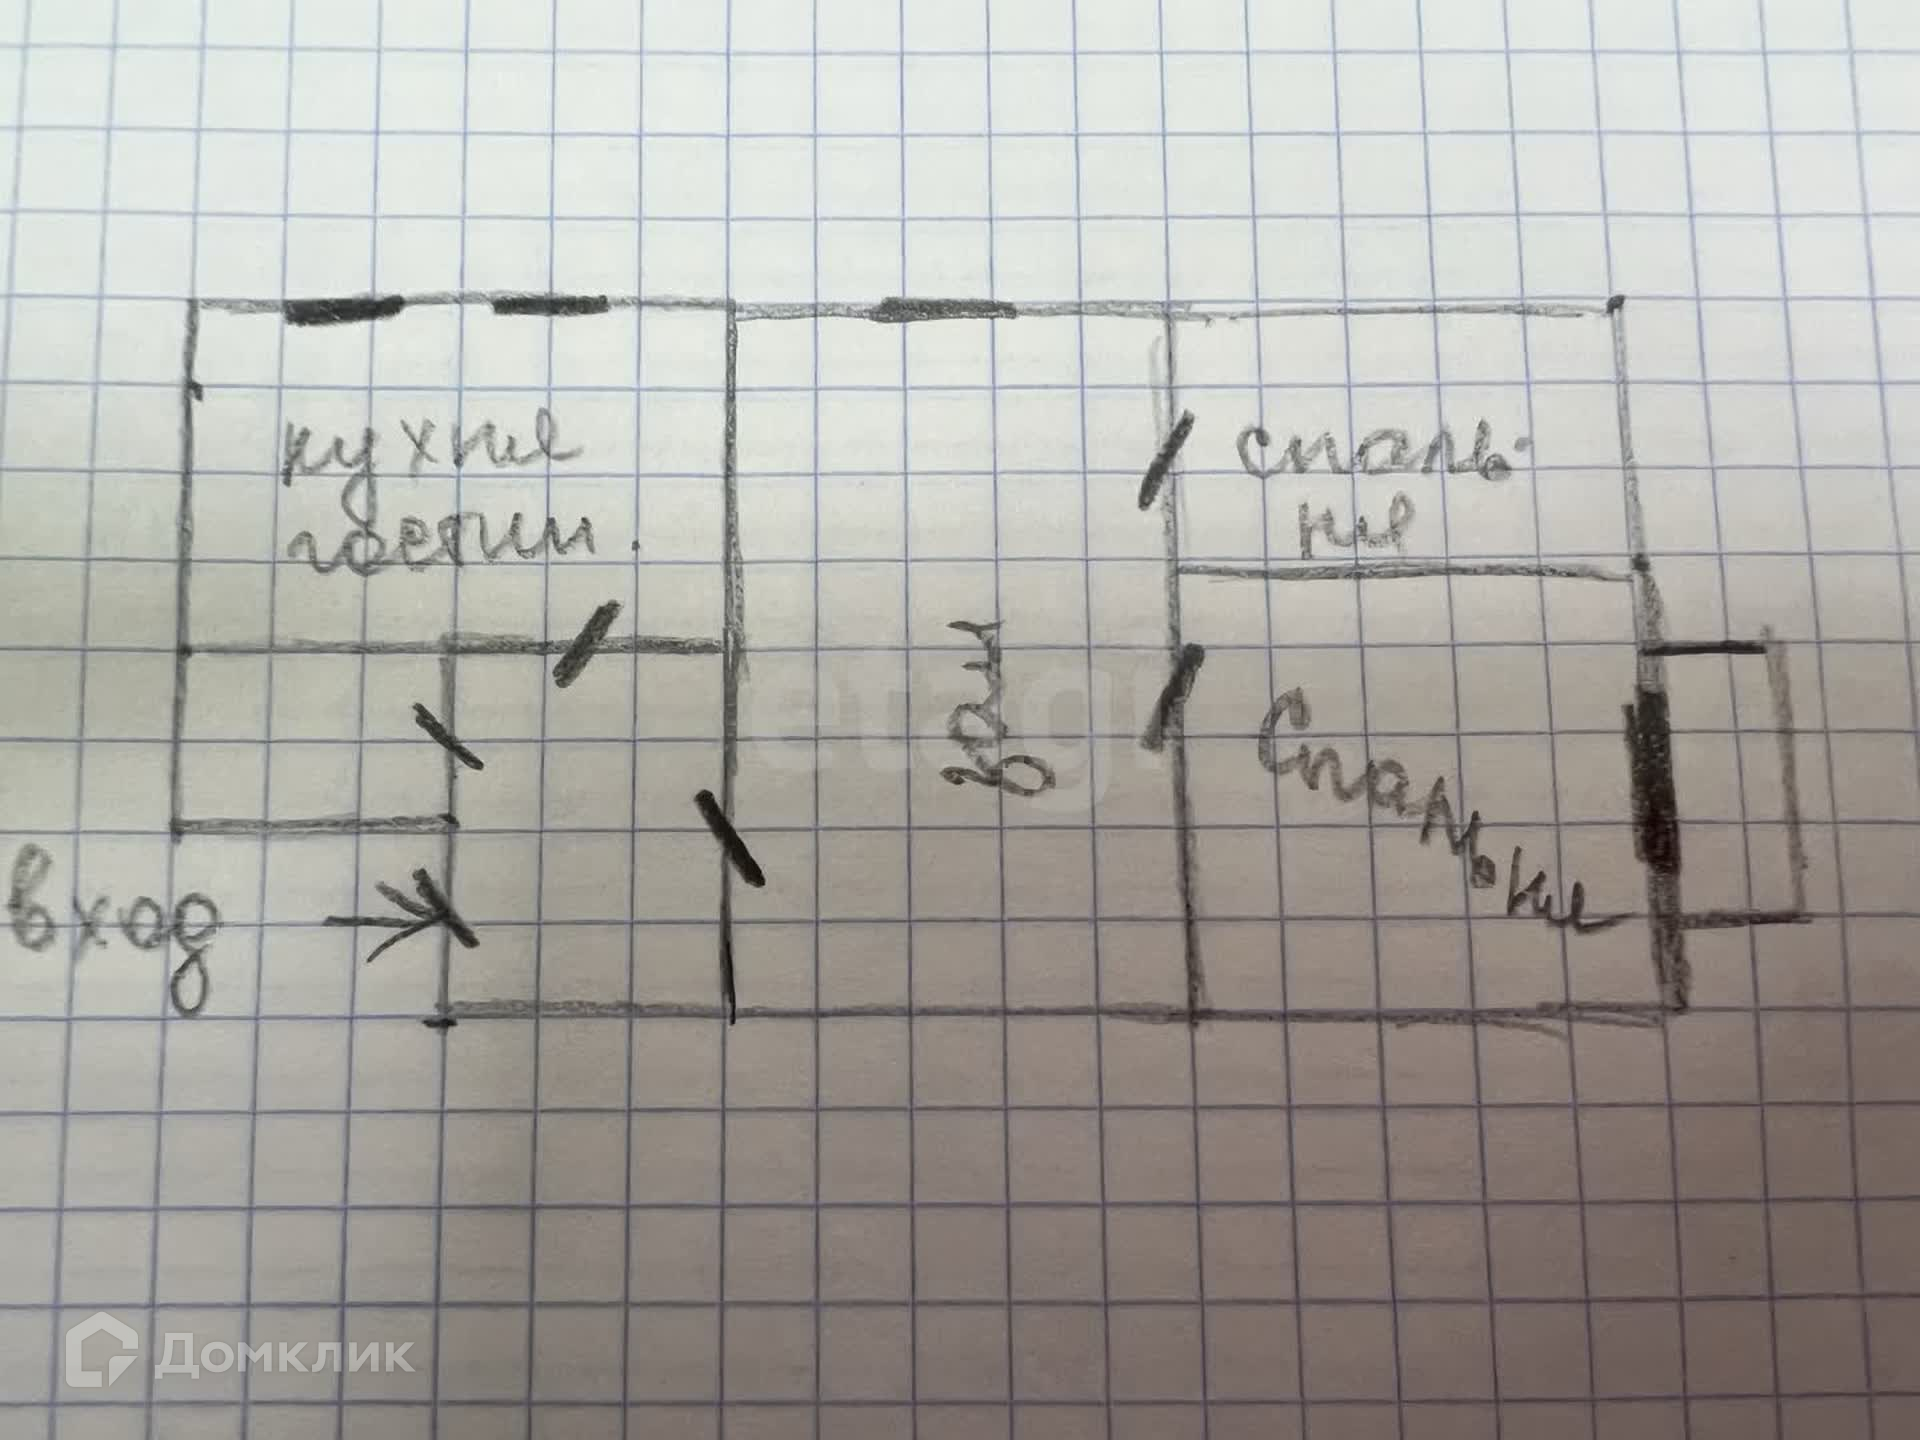 кухня
гостин.
спаль-
ня
зал
Спальня
вход
etagi
Домклик